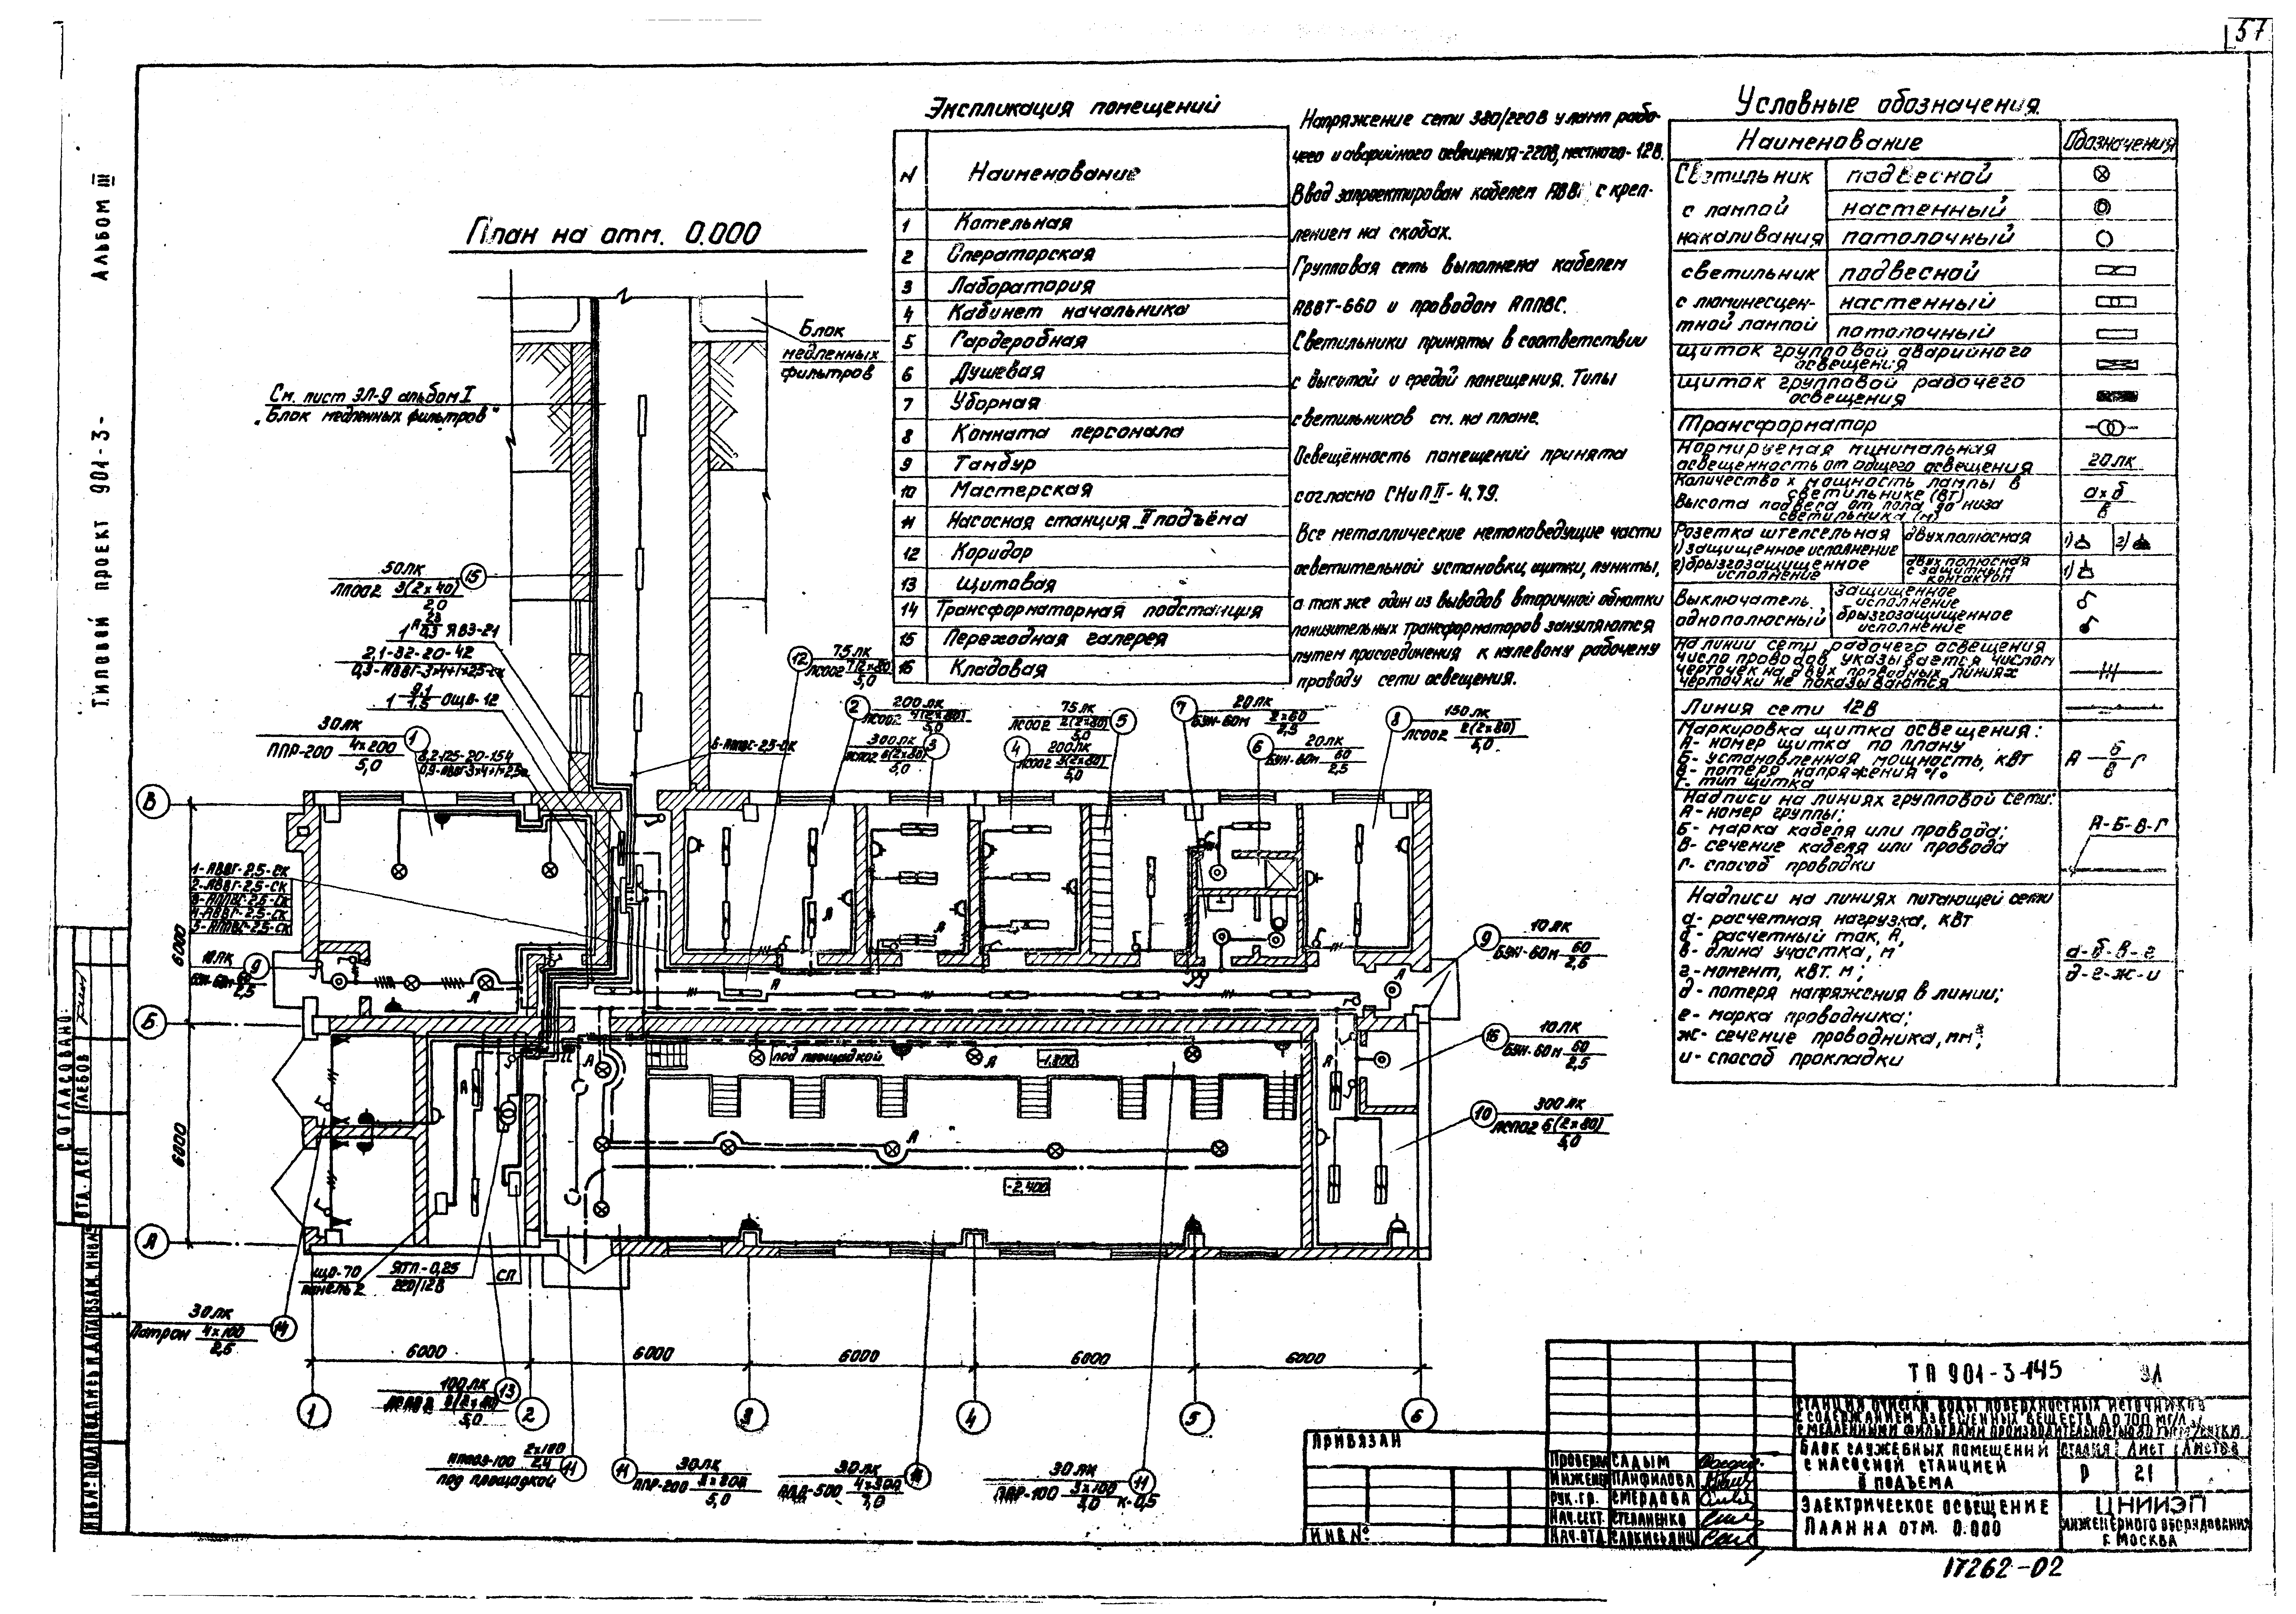 57
Альбом III
Типовой проект 901-3-
План на отм. 0.000
Блок
медленных
фильтров
См. лист ЭЛ-9 альбом I
"Блок медленных фильтров"
Экспликация помещений
N Наименование
1 Котельная
2 Операторская
3 Лаборатория
4 Кабинет начальника
5 Гардеробная
6 Душевая
7 Уборная
8 Комната персонала
9 Тамбур
10 Мастерская
11 Насосная станция II подъёма
12 Коридор
13 Щитовая
14 Трансформаторная подстанция
15 Переходная галерея
16 Кладовая
Напряжение сети 380/220В у ламп рабо-
чего и аварийного освещения-220В, местного-12В.
Ввод запроектирован кабелем АВВГ с креп-
лением на скобах.
Групповая сеть выполнена кабелем
АВВГ-660 и проводом АППВС.
Светильники приняты в соответствии
с высотой и средой помещения. Типы
светильников см. на плане.
Освещённость помещений принята
согласно СНиП II-4.79.
Все металлические нетоковедущие части
осветительной установки, щитки, пункты,
а так же один из выводов вторичной обмотки
понизительных трансформаторов зануляются
путем присоединения к нулевому рабочему
проводу сети освещения.
Условные обозначения.
Наименование Обозначения
Светильник подвесной
с лампой настенный
накаливания потолочный
светильник подвесной
с люминесцен- настенный
тной лампой потолочный
Щиток групповой аварийного
освещения
Щиток групповой рабочего
освещения
Трансформатор
Нормируемая минимальная
освещенность от общего освещения 20 лк
Количество х мощность лампы в
светильнике (вт) а х б
Высота подвеса от пола до низа в
светильника (м)
Розетка штепсельная двухполюсная 1) 2)
1) защищенное исполнение
2) брызгозащищенное двухполюсная с защитным контактом 1)
исполнение
Выключатель защищенное исполнение
однополюсный, брызгозащищенное исполнение
На линии сети рабочего освещения
число проводов указывается числом
черточек на двух проводных линиях
черточки не показываются
Линия сети 12В
Маркировка щитка освещения:
А- номер щитка по плану
Б- установленная мощность, кВт
В- потеря напряжения %
Г- тип щитка
А – Б/В Г
Надписи на линиях групповой сети:
А- номер группы;
Б- марка кабеля или провода;
В- сечение кабеля или провода
Г- способ проводки
А-Б-В-Г
Надписи на линиях питающей сети
а- расчетная нагрузка, кВт
б- расчетный ток, А,
в- длина участка, м
г- момент, кВт. м;
д- потеря напряжения в линии;
е- марка проводника;
ж- сечение проводника, мм²;
и- способ прокладки
а-б-в-г
д-е-ж-и
50лк
ЛПО02 3(2х40) 15
2,0
ЯВЗ-21
2,1-32-20-42
0,3-АВВГ-3х4+1х2,5-ск
1 9,1/1,5 ОЩВ-12
30лк
ППР-200 4х200 1
5,0
8,2-12,5-20-154
6-АППВС-2,5-ск
12 75лк
5,0
2 200лк
ЛСО02 4(2х80)
5,0
300лк 3
ЛСП02 6(2х80)
5,0
75лк 5
ЛСО02 2(2х80)
5,0
4 200лк
5,0
7 20лк
БУН-60м 2х60
2,5
6 20лк
БУН-60м 60
2,5
8 150лк
ЛСО02 2(2х80)
5,0
1-АВВГ-2,5-ск
2-АВВГ-2,5-ск
3-АППВС-2,5-ск
4-АВВГ-2,5-ск
5-АППВС-2,5-ск
10лк 9
БУН-60м
2,5
9 10лк
БУН-60м 60
2,5
16 10лк
БУН-60м 60
2,5
10 300лк
ЛСП02 6(2х80)
5,0
В
Б
А
6000
6000
под площадкой
-1.800
-2.400
А
ЩО-70
панель 2
ЯТП-0,25
220/12В
СП
30лк
Патрон 4х100 14
2,5
100лк 13
5,0
6000 6000 6000 6000 6000
1 2 3 4 5 6
2х100
2,4
под площадкой 11
11 30лк
ППР-200
5,0
30лк 11
7,0
30лк 11
ППР-100 3х100
3,0
СОГЛАСОВАНО:
ОТД. АСП ГЛЕБОВ
ИНВ.№ ПОДЛ. ПОДПИСЬ И ДАТА ВЗАМ. ИНВ.№
ПРИВЯЗАН
ИНВ №
ТП 901-3-145 ЭЛ
СТАНЦИЯ ОЧИСТКИ ВОДЫ ПОВЕРХНОСТНЫХ ИСТОЧНИКОВ
С СОДЕРЖАНИЕМ ВЗВЕШЕННЫХ ВЕЩЕСТВ ДО 700 МГ/Л
БЛОК СЛУЖЕБНЫХ ПОМЕЩЕНИЙ
С НАСОСНОЙ СТАНЦИЕЙ
II ПОДЪЕМА
СТАДИЯ ЛИСТ ЛИСТОВ
Р 21
ПРОВЕРИЛ САДЫМ
ИНЖЕНЕР ПАНФИЛОВА
РУК.ГР. СМЕРДОВА
НАЧ.СЕКТ. СТЕПАНЕНКО
НАЧ.ОТД. САРКИСЬЯНЦ
ЭЛЕКТРИЧЕСКОЕ ОСВЕЩЕНИЕ
ПЛАН НА ОТМ. 0.000
ЦНИИЭП
ИНЖЕНЕРНОГО ОБОРУДОВАНИЯ
Г. МОСКВА
17262-02